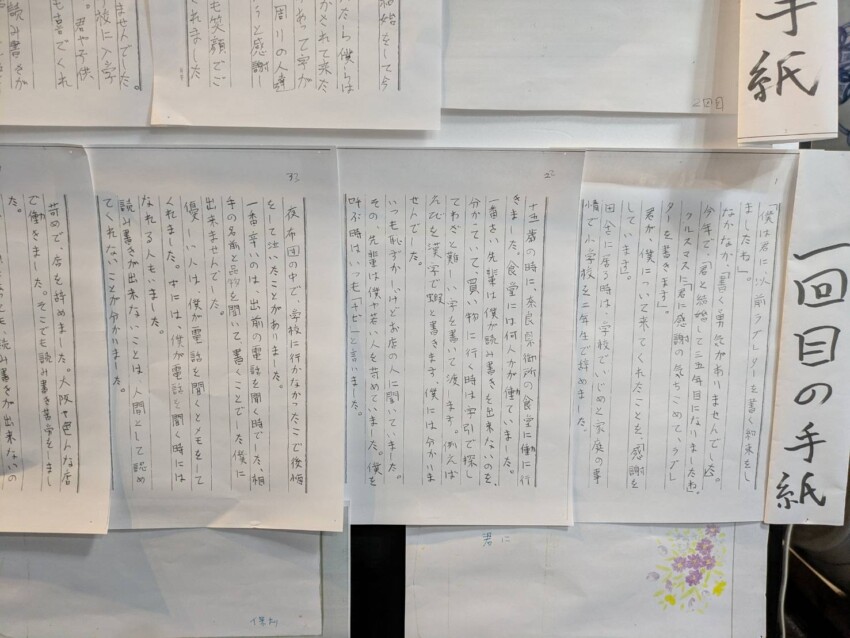 手紙
2回目
始をして今
たら僕らは
かされて来た
わって字が
周りの人達
うと感謝し
も笑顔でご
れました
ませんでした。
校に入学
君や子供
も喜でくれ
読み書きが
一回目の手紙
1
「僕は君に、以前ラブレターを書く約束をし
ましたね」。
なかなか、書く勇気がありませんでした。
今年で、君と結婚して三五年目になりましたね。
クルスマスに「君に感謝の気ちこめて、ラブレ
ターを書きます」。
君が、僕について来てくれたことを、感謝を
しています」。
田舎に居る時は、学校でいじめと家庭の事
情で小学校を二年生で辞めました。
22
十五歳の時に、奈良県御所の食堂に働に行
きました。食堂には何人かが働ていました。
一番古い先輩は僕が読み書きを出来ないのを、
分かっていて、買い物に行く時は字引で探し
てわざと難しい字を書いて渡します。例えば
えびを漢字で蝦と書きます。僕には分かりま
せんでした。
いつも恥ずかしいけどお店の人に聞いていました。
その先輩は僕や若い人を苛めていました。僕を
呼ぶ時はいつも「チビ」と言いました。
33
夜布団の中で、学校に行かなかったことで後悔
をして泣いたことがありました。
一番辛いのは出前の電話を聞く時でした、相
手の名前と品物を聞いて、書くことでした僕に
出来ませんでした。
優しい人は、僕が電話を聞くとメモをして
くれました。中には、僕が電話を聞く時には
なれる人もいました。
読み書きが出来ないことは、人間として認め
てくれないことが分かりました。
苛めで、店を辞めました。大阪や色んな店
で働きました。そこでも読み書き苦労をしまし
た。
も読み書きが出来ないの
君に